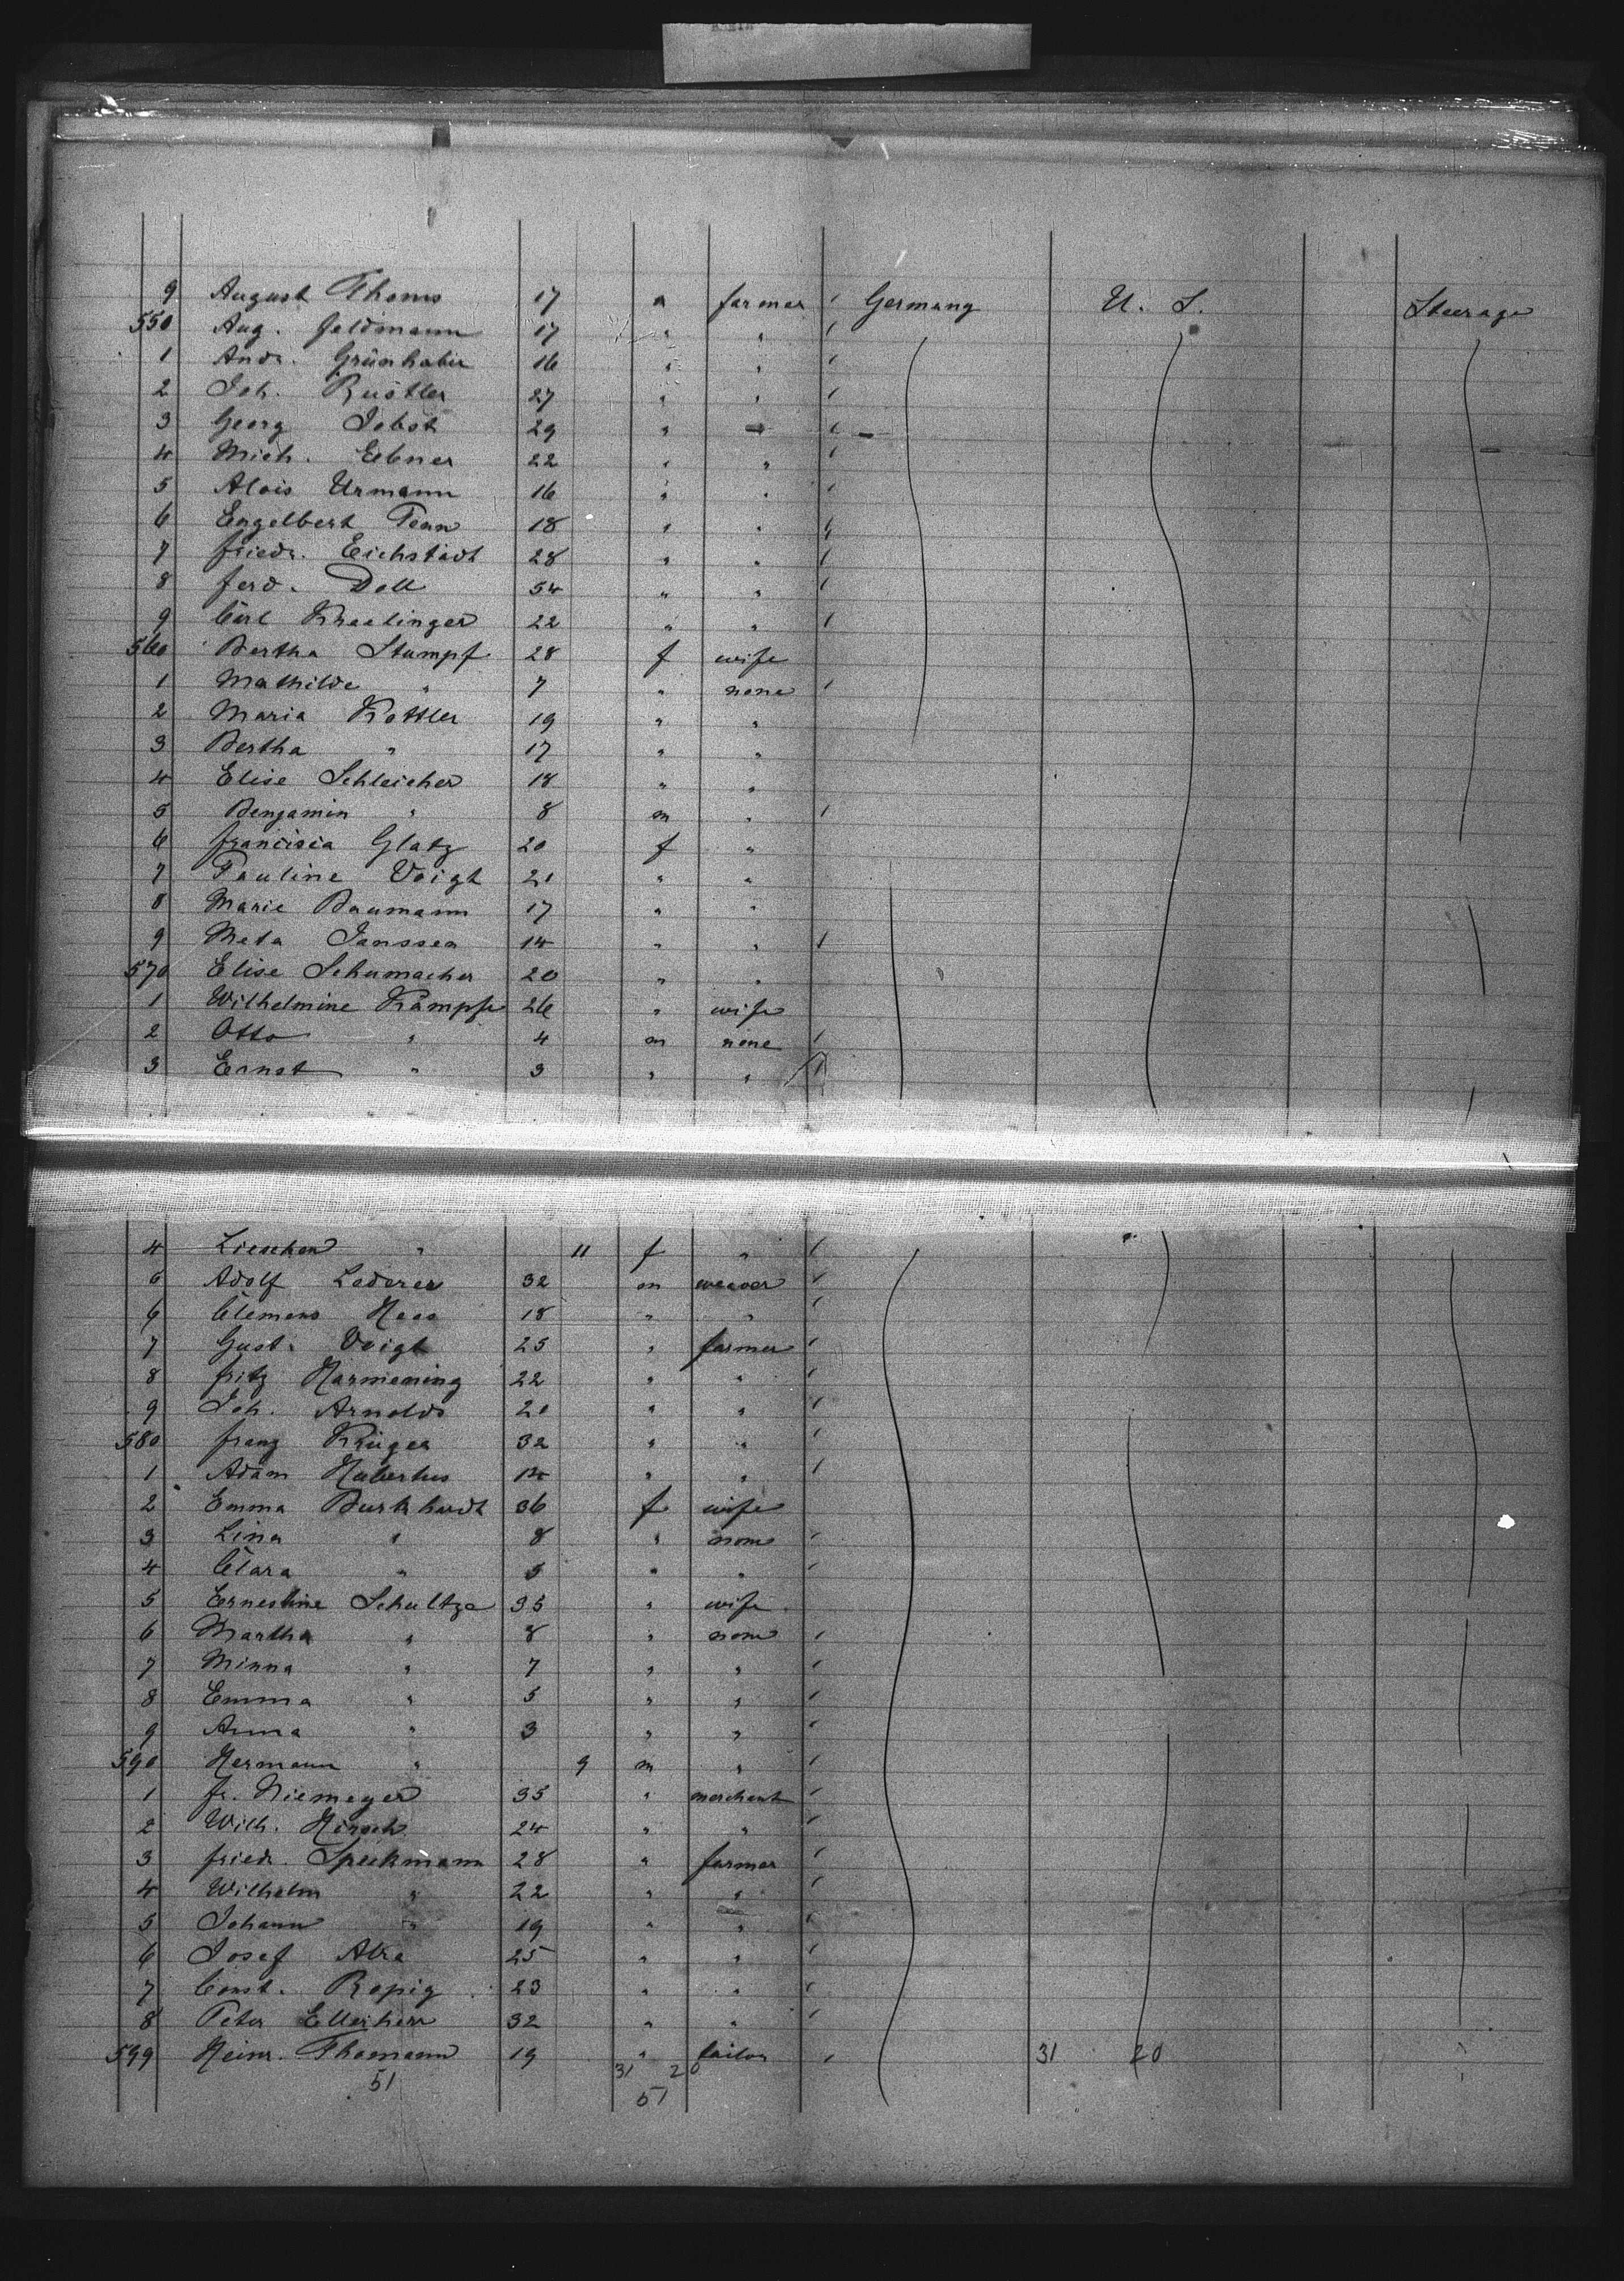 9 August Thoms 17 m farmer Germany U. S. Steerage
550 Aug. Feldmann 17 " "
1 Andr. 16 " "
2 Joh. 27 " "
3 Georg Jobst 29 " "
4 Mich. Ebner 22 " "
5 Alois Urmann 16 " "
6 Engelbert 18 " "
7 Friedr. Eichstädt 28 " "
8 Ferd. Doll 54 " "
9 Carl 22 " "
560 Bertha Stumpf 28 f wife
1 Mathilde " 7 " none
2 Maria Kottler 19 " "
3 Bertha " 17 " "
4 Elise Schleicher 18 " "
5 Benjamin " 8 m "
6 Glatz 20 f "
7 Pauline Voigt 21 " "
8 Marie Baumann 17 " "
9 Meta Janssen 14 " "
570 Elise Schumacher 20 " "
1 Wilhelmine Kämpfe 26 " wife
2 Otto " 4 m none
3 Ernst " 3 " "
4 Lieschen " 11 f "
5 Adolf Lederer 32 m weaver
6 Clemens 18 " "
7 Gust. Voigt 25 " farmer
8 Fritz Harmening 22 " "
9 Joh. Arnolds 20 " "
580 Franz Krüger 32 " "
1 Adam Hubertus 14 " "
2 Emma Burkhardt 36 f wife
3 Lina " 8 " none
4 Clara " 5 " "
5 Ernestine Schultze 35 " wife
6 Martha " 8 " none
7 Minna " 7 " "
8 Emma " 5 " "
9 Anna " 3 " "
590 Hermann " 9 m "
1 Fr. Niemeyer 35 " merchant
2 Wilh. Hirsch 24 " "
3 Friedr. Speckmann 28 " farmer
4 Wilhelm " 22 " "
5 Johann " 19 " "
6 Josef 25 " "
7 Const. 23 " "
8 Peter 32 " "
599 Heinr. Thomann 19 " tailor 31 20
51 31 20
51